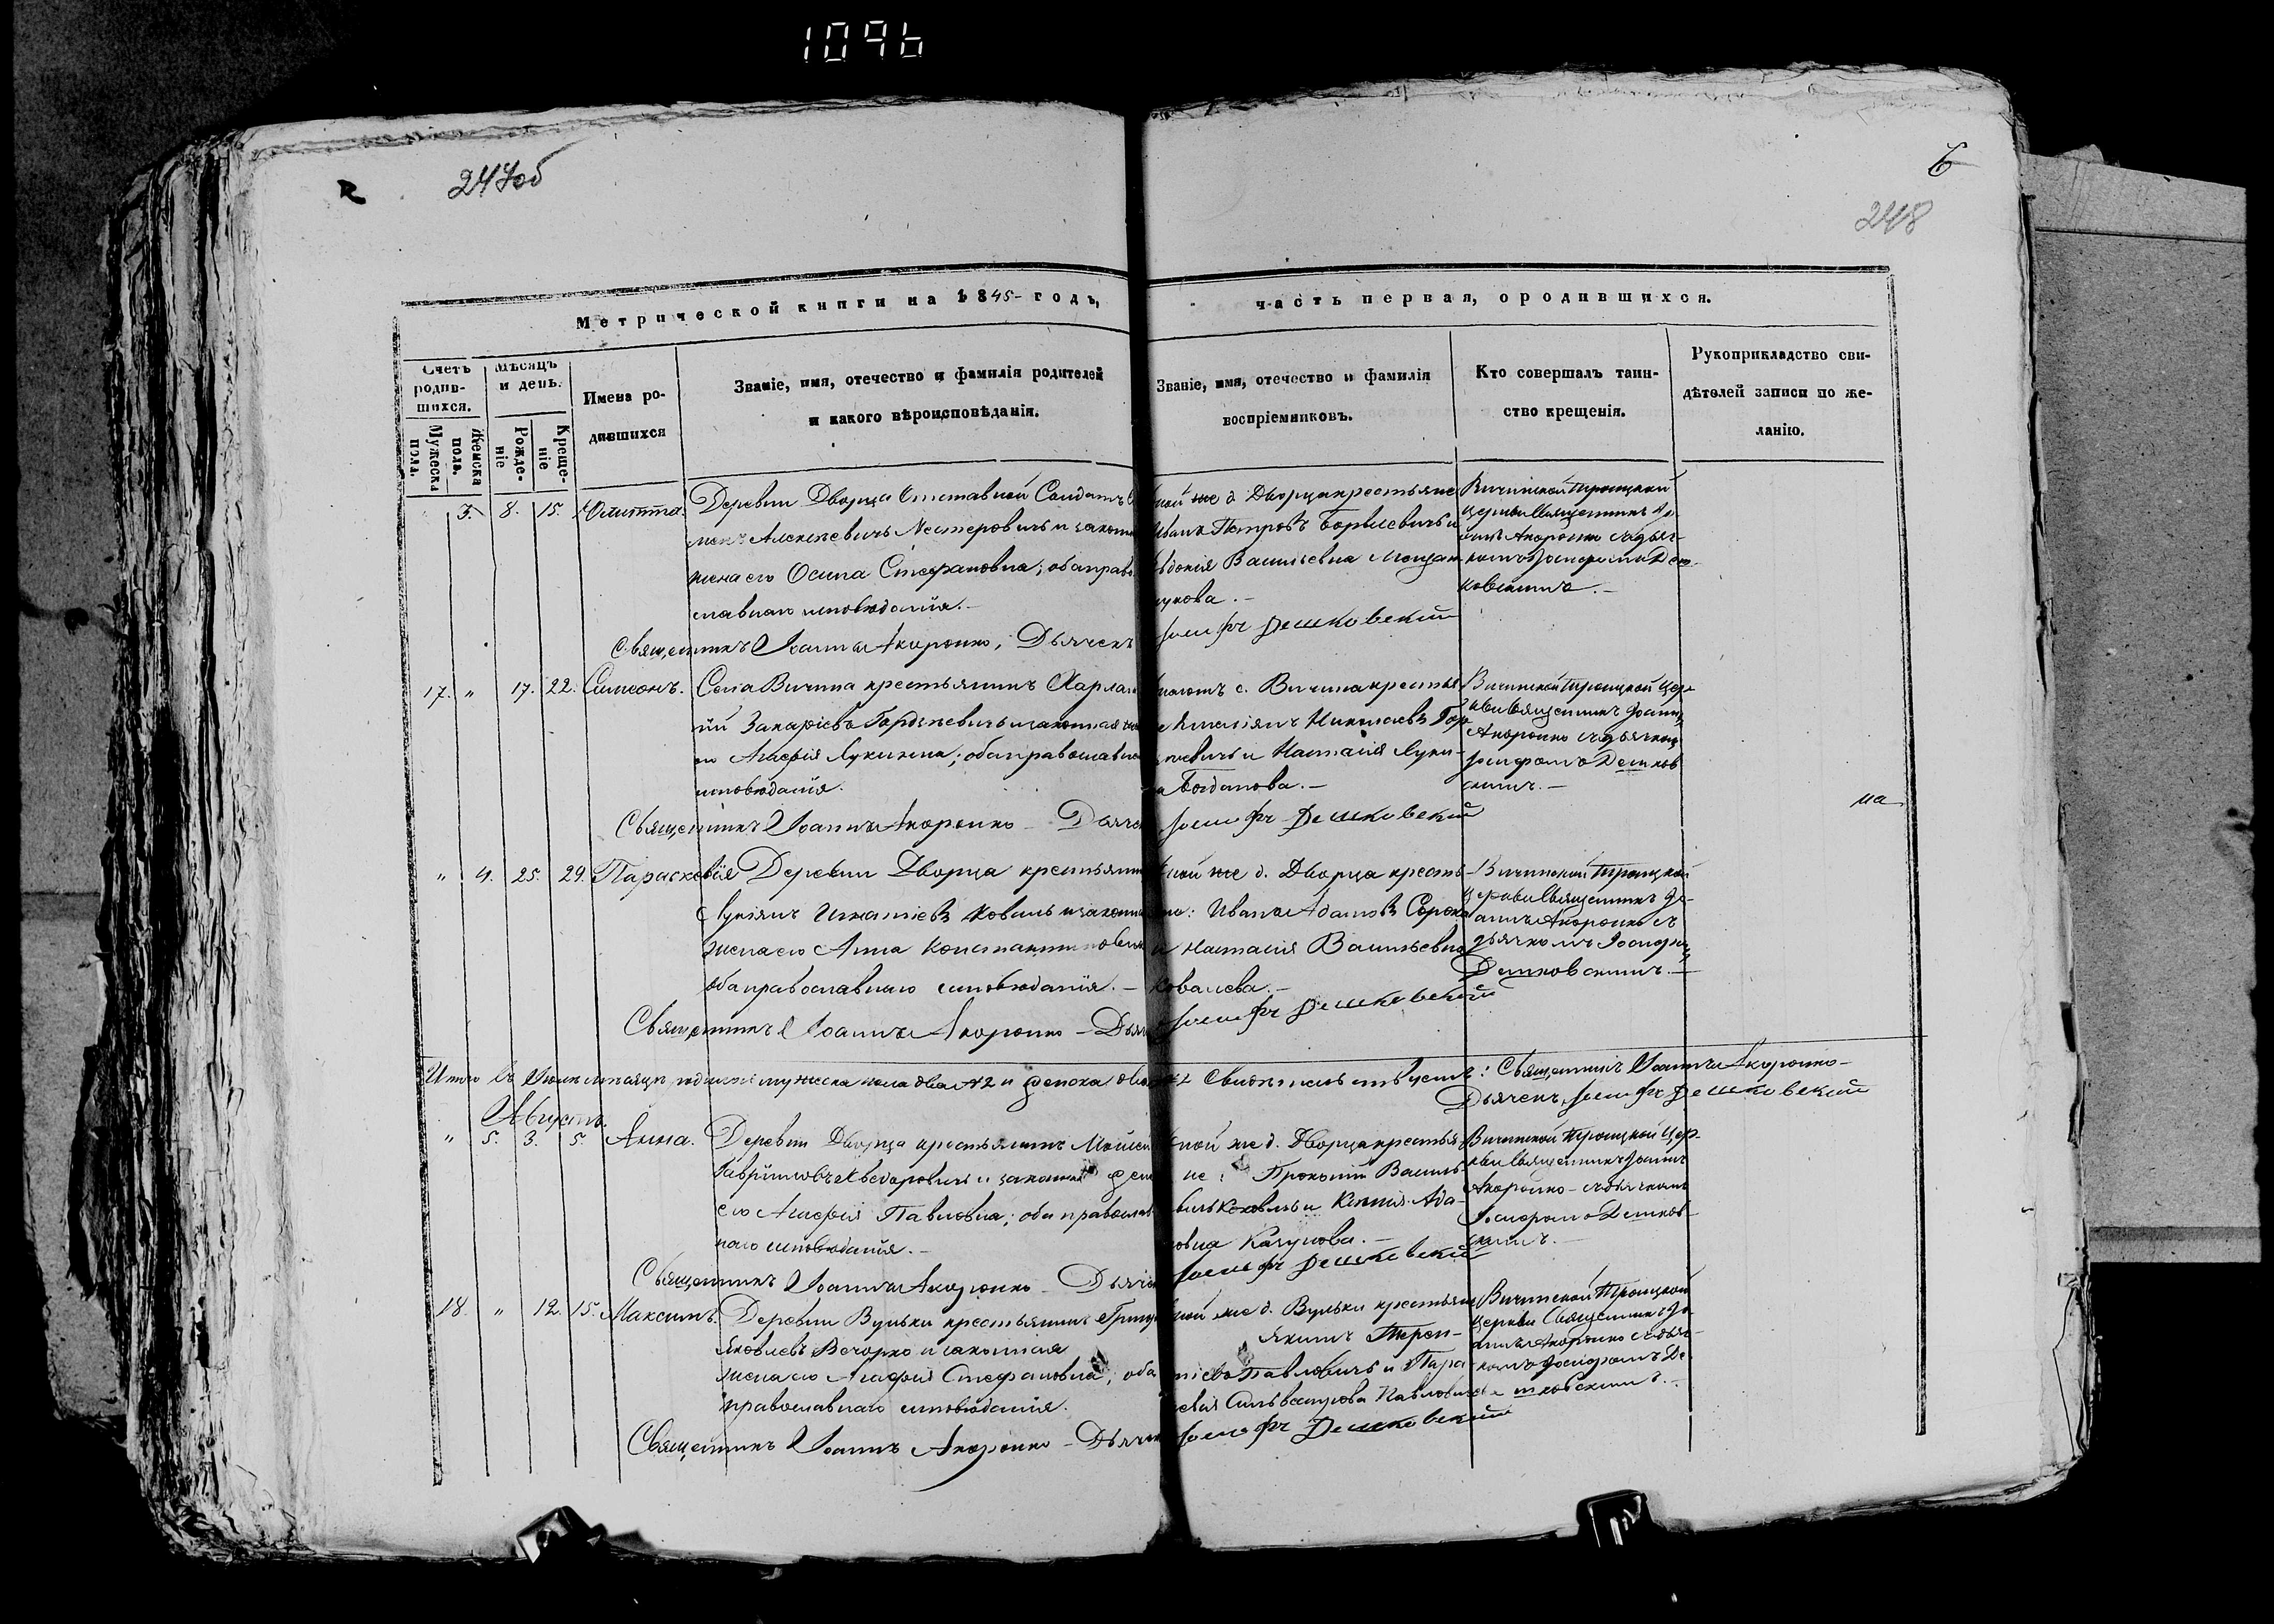 1096
247об
6
248
Метрической книги на 1845- годъ, часть первая, ородившихся.
Счетъ родив- шихся.
Мужеска пола.
Женска пола.
Мѣсяцъ и день.
Рожде- ніе
Креще- ніе
Имена ро- дившихся
Званіе, имя, отечество и фамилія родителей
и какого вѣроисповѣданія.
Званіе, имя, отечество и фамилія
воспріемниковъ.
Кто совершалъ таин-
ство крещенія.
Рукоприкладство сви-
дѣтелей записи по же-
ланію.
3. 8. 15. Улитта.
Деревни Дворца Отставной Солдатъ
Алексѣевичъ Нестеровичъ и законная
жена его Осипа Стефановна; оба право
славнаго исповѣданія.-
ной же д. Дворца крестьяне
Иванъ Петровъ и
Васильевна
Вичинской Троицкой
церкви Священникъ Іо-
аннъ Акоронко съ дьяч-
комъ Іосифомъ Деш-
ковскимъ.-
Священникъ Іоаннъ Акоронко, Дьячекъ Іосифъ Дешковский
17. " 17. 22. Симеонъ.
Села Вичина крестьянинъ Харлам
ій Захаріевъ Гордѣевичъ и законная же
его Агафія Лукична; оба православна
исповѣданія.
с. Вичина крестья
Николаевъ Гор
и Наталія Луки-
Богданова.-
Вичинской Троицкой Цер
кви Священникъ Іоаннъ
Акоронко съ дьячкомъ
Іосифомъ Дешков
скимъ.-
Священникъ Іоаннъ Акоронко - Дьяче Іосифъ Дешковский
на
" 4. 25. 29. Параскевія
Деревни Дворца крестьянин
Лукіянъ Игнатіевъ Коваль и законна
жена его Анна Константиновна
оба православнаго исповѣданія.-
ной же д. Дворца кресть-
не: Иванъ Адамовъ Сорока
и Наталія Васильевна
Ковалева.-
Вичинской Троицкой
церкви Священникъ Іо-
аннъ Акоронко съ
дьячкомъ Іосифомъ
Дешковскимъ.-
Священникъ Іоаннъ Акоронко - Дьяч Іосифъ Дешковский
Итого въ Іюлѣ мѣсяцѣ родилось мужеска пола два №2 и женска два №2 : Священникъ Іоаннъ Акоронко-
Дьячекъ Іосифъ Дешковский
Августъ.
" 5. 3. 5. Анна.
Деревни Дворца крестьянинъ Моисей
Гавріиловъ Ѳедоровичъ и законная жена
его Агафія Павловна; оба православ
наго исповѣданія.-
ной же д. Дворца крестья
не: Прокопій Василь-
Коваль и Ксенія Ада-
мовна
Вичинской Троицкой Цер-
кви Священникъ Іоаннъ
Акоронко - съ дьячкомъ
Іосифомъ Дешков-
скимъ.-
Священникъ Іоаннъ Акоронко - Дьяче Іосифъ Дешковский
18. " 12. 15. Максимъ.
Деревни Вульки крестьянинъ Григо
Яковлевъ Вечорко и законная
жена его Агафія Стефановна, оба
православнаго исповѣданія.
ной же д. Вульки крестьян
Якимъ Терен-
тіевъ Павловичъ и Пара-
скевія Павловичева
Вичинской Троицкой
церкви Священникъ Іо-
аннъ Акоронко съ дьяч-
комъ Іосифомъ Де-
шковскимъ.-
Священникъ Іоаннъ Акоронко - Дьячек Іосифъ Дешковский